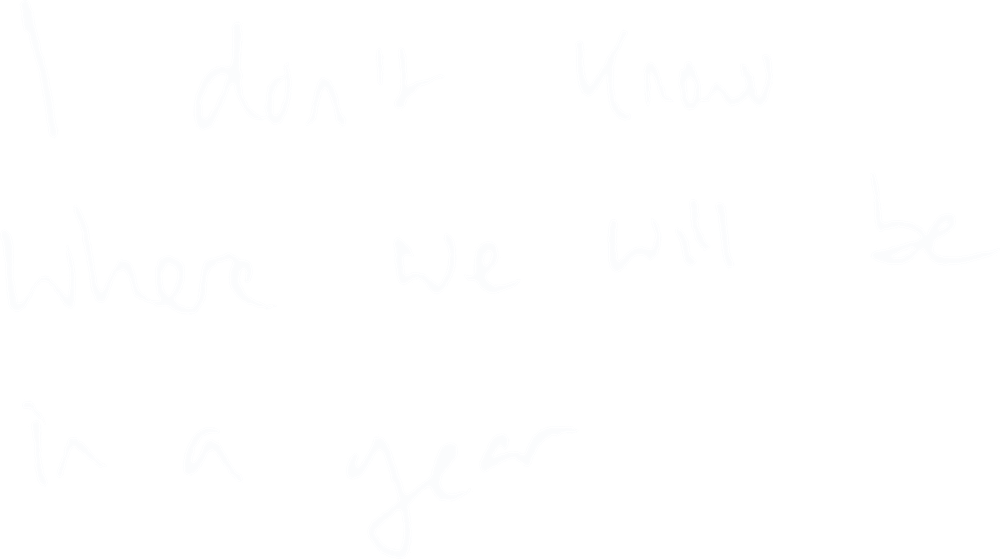 I don't know
where we will be
in a year